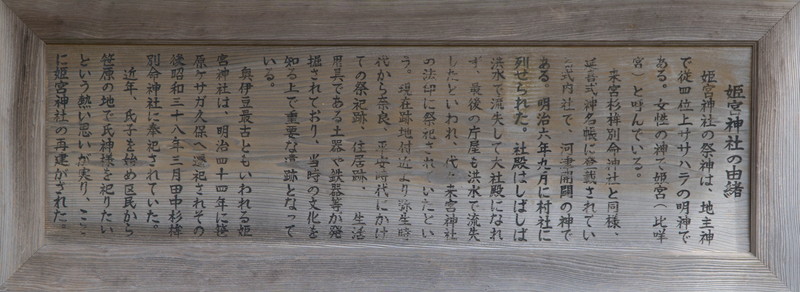 姫宮神社の由緒
姫宮神社の祭神は、地主神
で従四位上ササハラの明神で
ある。女性の神で姫宮(比咩
宮)と呼んでいる。
来宮杉桙別命神社と同様、
延喜式神名帳に登載されてい
る式内社で、河津開闢の神で
ある。明治六年九月に村社に
列せられた。社殿はしばしば
洪水で流失して大社殿になれ
ず、最後の庁屋も洪水で流失
したといわれ、代々来宮神社
の法印に祭祀されていたとい
う。現在跡地付近より弥生時
代から奈良、平安時代にかけ
ての祭祀跡、住居跡、生活
用具である土器や鉄器等が発
掘されており、当時の文化を
知る上で重要な遺跡となって
いる。
奥伊豆最古ともいわれる姫
宮神社は、明治四十四年に笹
原ケサガ久保へ遷祀されその
後昭和三十八年三月田中杉桙
別命神社に奉祀されていた。
近年、氏子を始め区民から
笹原の地で氏神様を祀りたい
という熱い思いが実り、ここ
に姫宮神社の再建がされた。